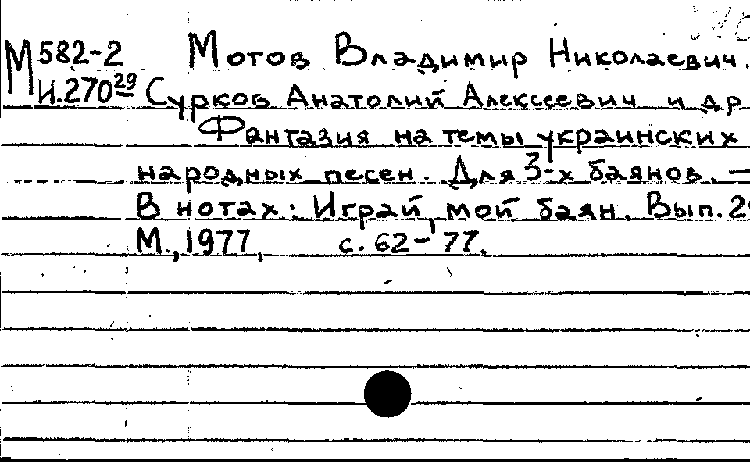 М 582-2 Мотов Владимир Николаевич.
И.270 29 Сурков Анатолий Алексеевич и др
Фантазия на темы украинских
народных песен. Для 3-х баянов. —
В нотах: Играй, мой баян. Вып. 2
М., 1977, с. 62-77.